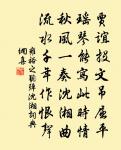 賈誼投文吊屈平
瑤琴能寫此時情
秋風一奏沈湘曲
流水千年作恨聲
雍裕之聽彈沈湘詞典
網喜